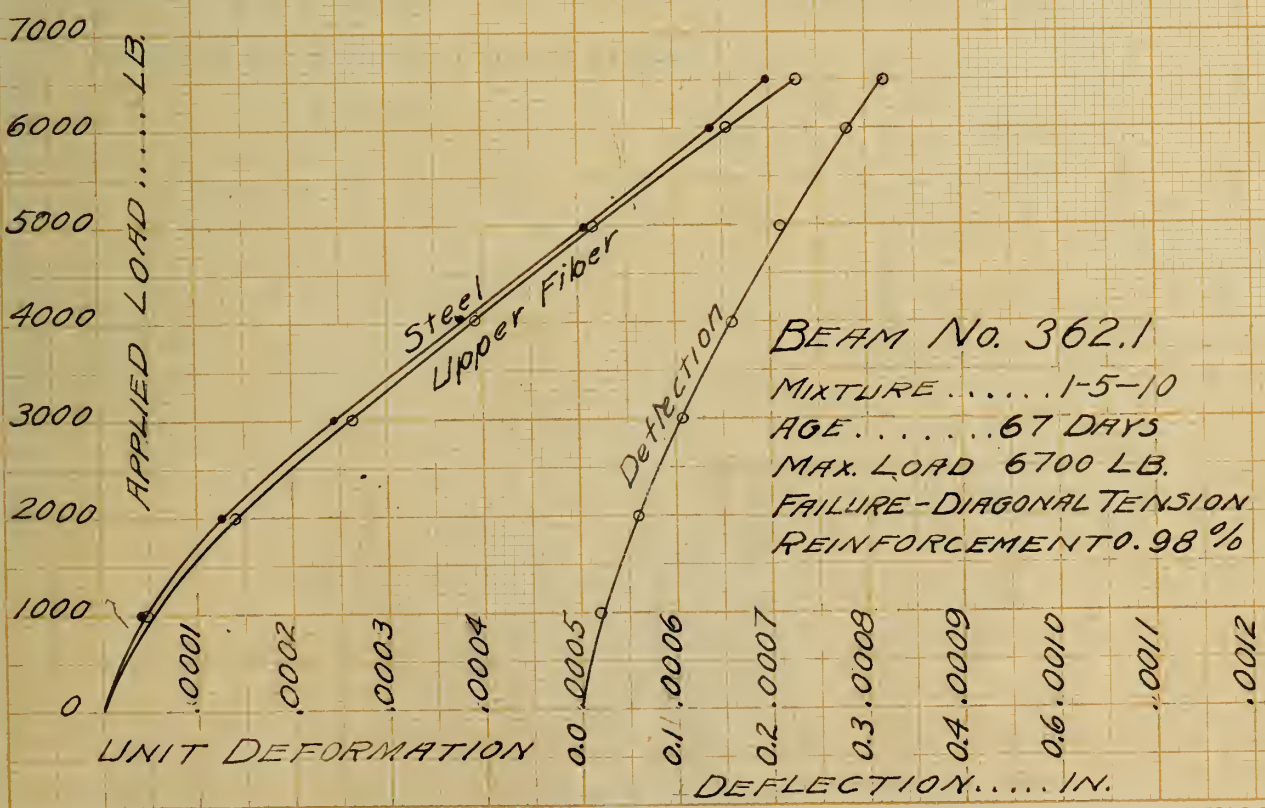 7000
6000
5000
4000
3000
2000
1000
0
APPLIED LOAD.....LB.
Steel
Upper Fiber
Deflection
BEAM No. 362.1
MIXTURE ...... 1-5-10
AGE ....... 67 DAYS
MAX. LOAD 6700 LB.
FAILURE-DIAGONAL TENSION
REINFORCEMENT 0.98 %
.0001 .0002 .0003 .0004 .0005 .0006 .0007 .0008 .0009 .0010 .0011 .0012
UNIT DEFORMATION
0.0 0.1 0.2 0.3 0.4 0.6
DEFLECTION.....IN.